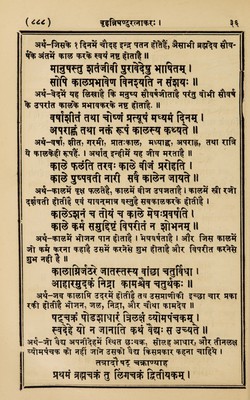 ( ८८८ ) बृहन्निघण्टुरत्नाकरः । ३६
अर्थ-जिसके १ दिनमें चौदह इन्द्र पतन होतेहैं, ऐसाभी ब्रह्मदेव सौवर्ष-
के अंतमें काल करके स्वयं नष्ट होताहै ।
मानुषस्तु शतंजीवी पुरावेदेषु भाषितम् ।
सोपि कालप्रभावेण विनश्यति न संशयः ॥
अर्थ-वेदमें यह लिखाहै कि मनुष्य सौवर्षजीताहै परंतु वोभी सौवर्ष
के उपरांत कालके प्रभावकरके नष्ट होताहै ।
वर्षाशीतं तथा चोष्णं प्रत्यूषं मध्यमं दिनम् ।
अपराह्णं तथा नक्तं रूपं कालस्य कथ्यते ॥
अर्थ- वर्षा, शीत, गरमी, प्रातःकाल, मध्याह्न, अपराह्न, तथा रात्रि
ये कालकेही रूपहैं । अर्थात् इन्हीमें यह जीव मरताहै ॥
काले फलंति तरवः काले बीजं प्ररोहति ।
काले पुष्पवती नारी सर्वं कालेन जायते ॥
अर्थ- कालमें वृक्ष फलतेहैं, कालमें बीज उपजताहै । कालमें स्त्री रजो
दर्शवती होतीहै एवं यावन्मात्र वस्तुहै सबकालकरके होतीहै ।
कालेऽशनं च तोयं च काले मेघःप्रवर्षति ।
काले कर्म समुद्दिष्टं विपरीतं न शोभनम् ॥
अर्थ- कालमें भोजन पान होताहै । मेघवर्षताहै । और जिस कालमें
जो कर्म करना कहाहै उसमें करनेसे शुभ होताहै और विपरीत करनेसे
शुभ नही है ॥
कालाग्निर्जठरे जातस्तस्य वांछा चतुर्विधा ।
आहारमुदकं निद्रा कामश्चैव चतुर्थकः ॥
अर्थ-जब कालाग्नि उदरमें होतीहै तब उसप्राणीकी इच्छा चार प्रका
रकी होतीहै भोजन, जल, निद्रा, और चौथा कामदेव ।
षट्चक्रं षोडशाधारं त्रिलक्षं व्योमपंचकम् ।
स्वदेहे यो न जानाति कथं वैद्यः स उच्यते ॥
अर्थ-जो वैद्य अपनीदेहमें स्थित छःचक्र, सोलह आधार, और तीनलक्ष
व्योमपंचक की नहीं जाने उसको वैद्य किसप्रकार कहना चाहिये ।
प्रथमं ब्रह्मचक्रं तु लिंगचक्रं द्वितीयकम् ।